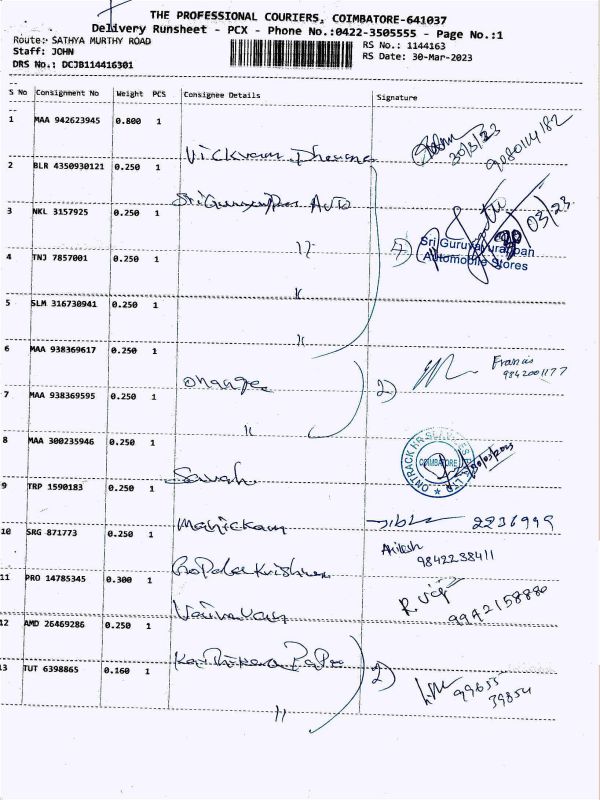 THE PROFESSIONAL COURIERS, COIMBATORE-641037
Delivery Runsheet - PCX - Phone No.:0422-3505555 - Page No.:1
Route:- SATHYA MURTHY ROAD
RS No.: 1144163
Staff: JOHN
RS Date: 30-Mar-2023
DRS No.: DCJB114416301
S No Consignment No Weight PCS Consignee Details Signature
1 MAA 942623945 0.800 1
30/3/23
2 BLR 4350930121 0.250 1
Sri Guruvayurappan Auto
3 NKL 3157925 0.250 1
"
Sri Guruvayurappan
Automobile Stores
4 TNJ 7857001 0.250 1
"
5 SLM 316730941 0.250 1
"
6 MAA 938369617 0.250 1
orange 2) Francis
9842001177
7 MAA 938369595 0.250 1
"
8 MAA 300235946 0.250 1
ONTRACK HR SERVICES
COIMBATORE
9 TRP 1590183 0.250 1
Manickam 2236999
10 SRG 871773 0.250 1
Gopala Krishnan 9842238411
11 PRO 14785345 0.300 1
9942158880
12 AMD 26469286 0.250 1
2)
13 TUT 6398865 0.160 1
99655
39854
"